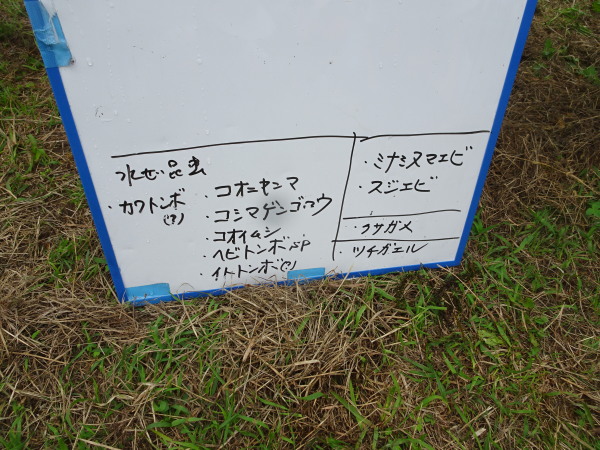 水せい昆虫
・カワトンボ
(?)
・コオニヤンマ
・コシマゲンゴロウ
・コオイムシ
・ヘビトンボsp
・イトトンボ(?)
・ミナミヌマエビ
・スジエビ
・クサガメ
・ツチガエル